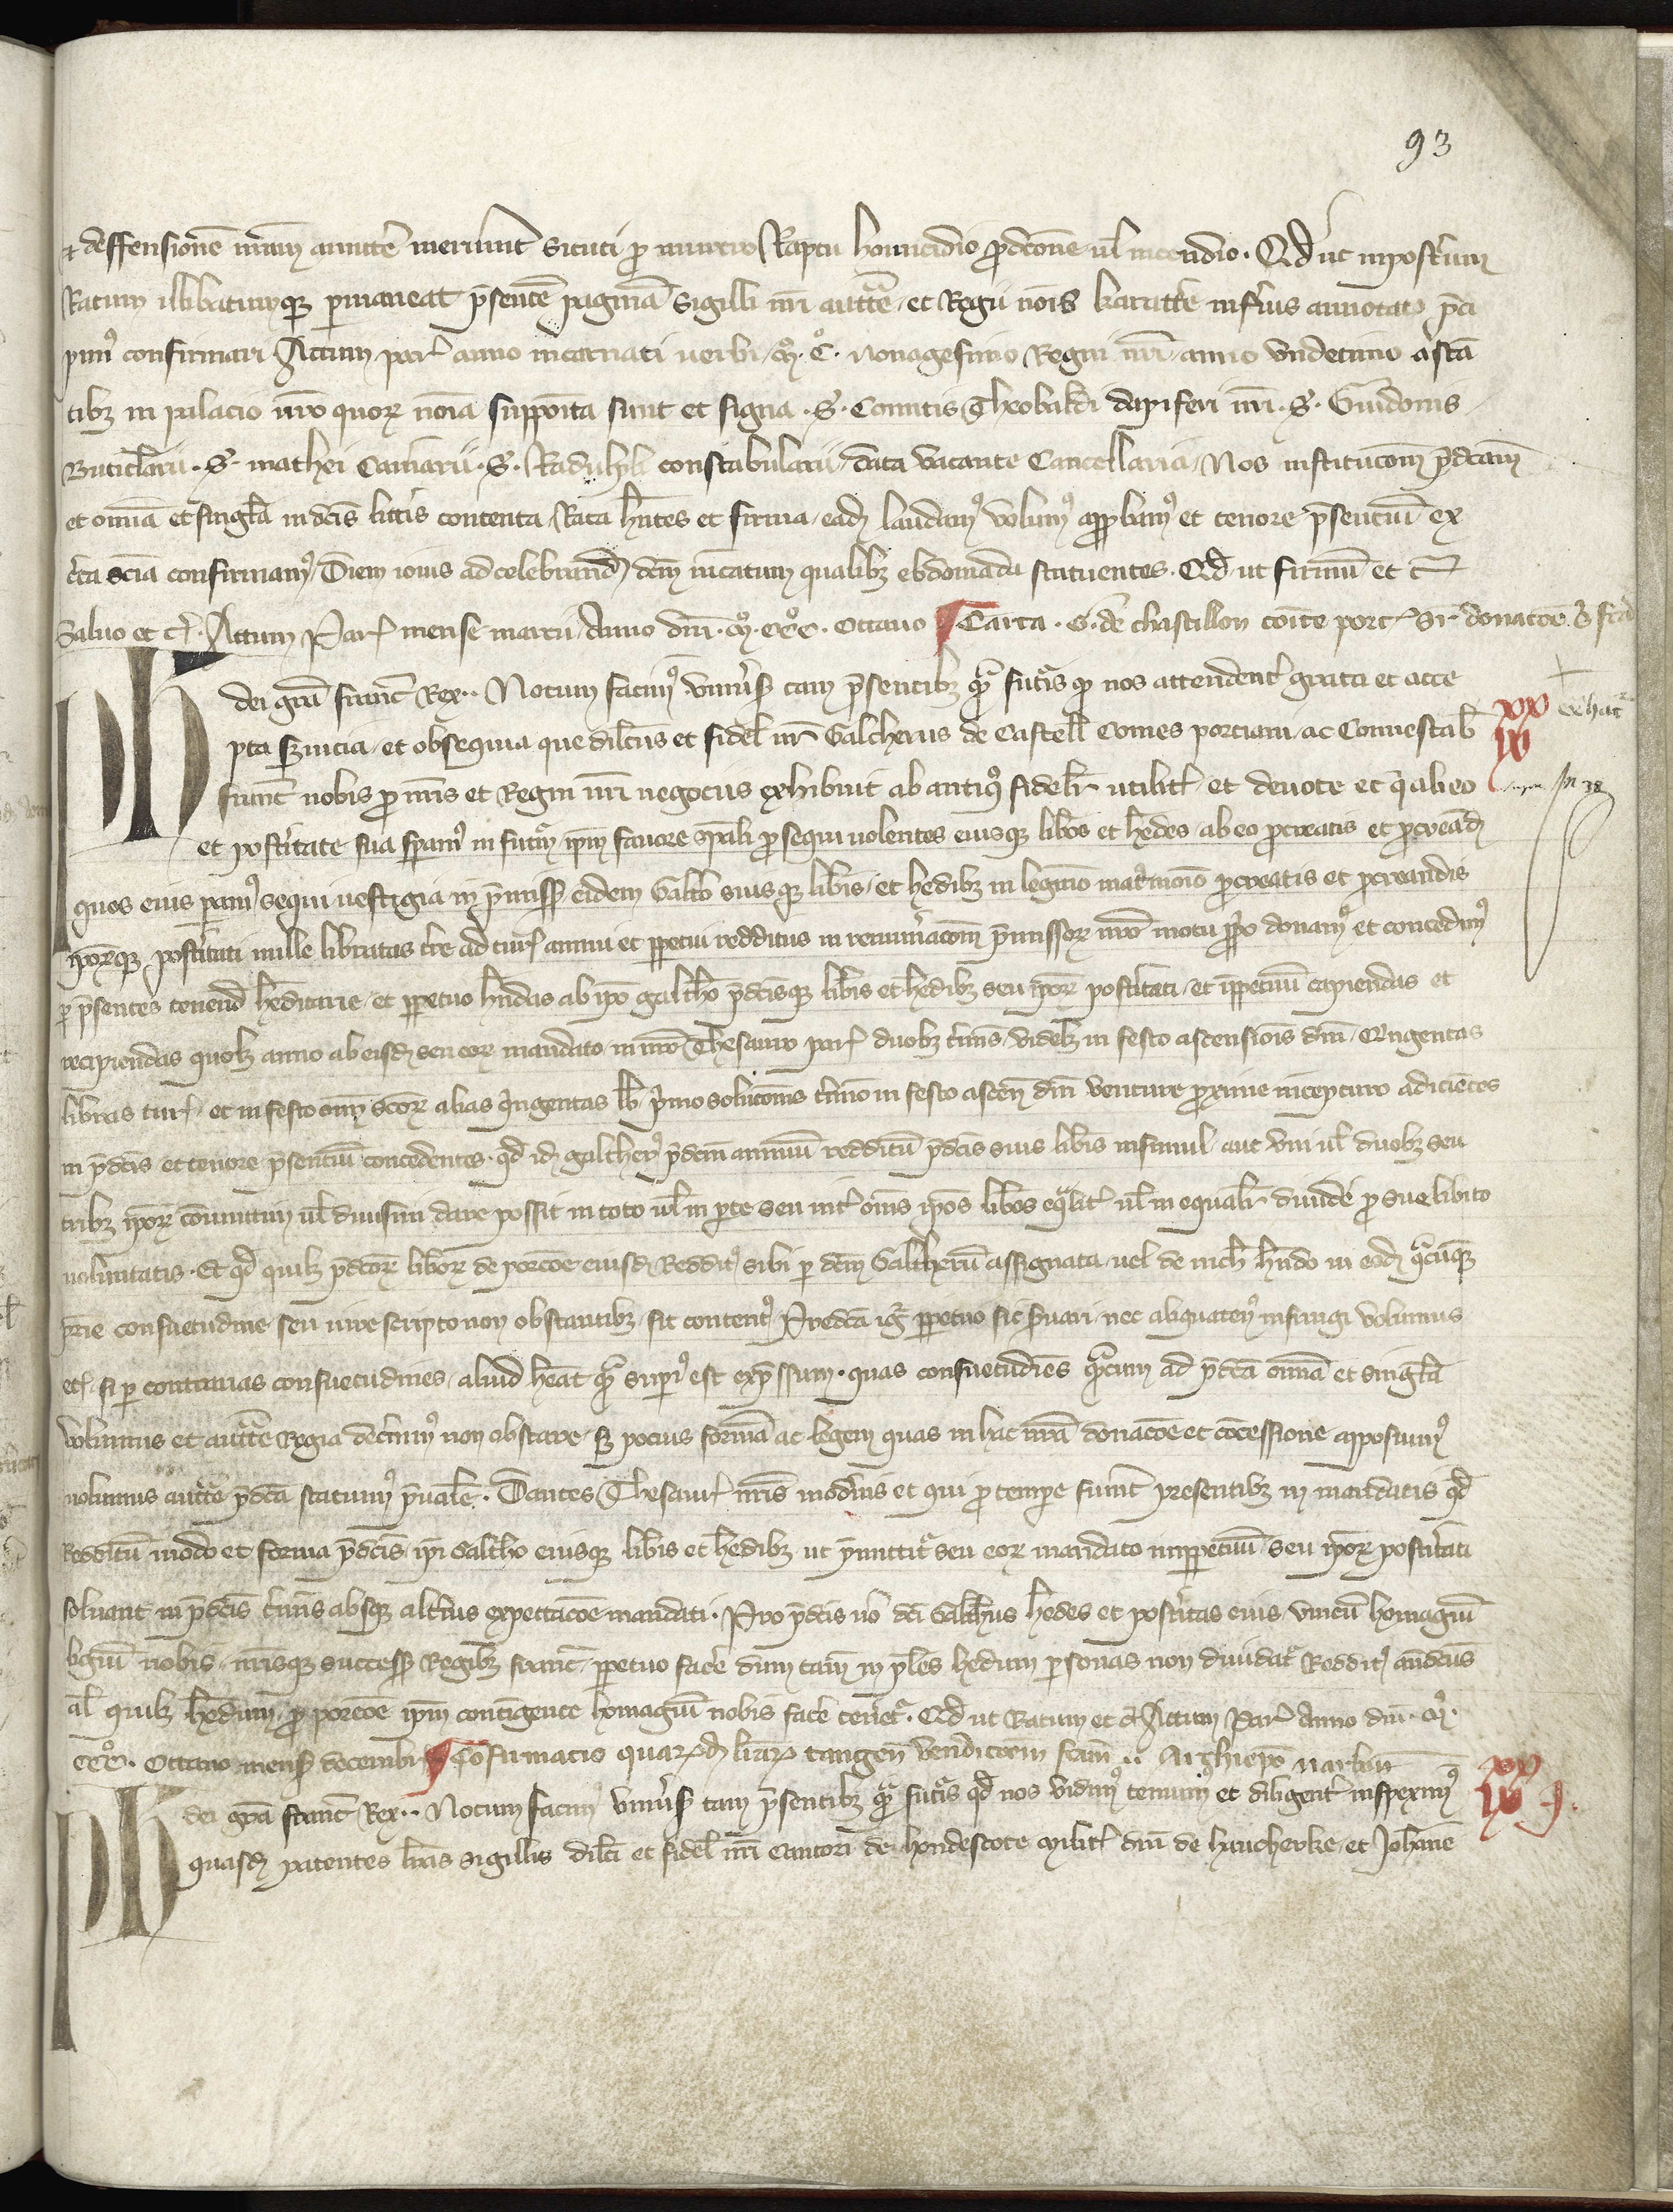 93
⁊ deffensionē nrām amittē meriunt sicuti ꝓ murtro Raptu homicidio ꝓdcōne ul̄ incendio. Qd̄ ut inposterum
Ratum illibatumqꝫ permaneat p̄sentē paginā sigilli nr̄i auctte et Regii nōīs karactē inferius annotato p̄ci
pim⁹ confirmari Actum par̄ anno incarnati uerbi. M̊. C̊. nonagesimo Regni nr̄i anno vndecimo astā
tibꝫ in palacio nr̄o quoꝝ nōia supposita sunt et signa. S. Comitis Theobaldi dapiferi nr̄i. S. Guidonis
Buticlarii. S. mathei Camarii. S. Radulphi constabularii. data vacante Cancellaria. Nos institucōem p̄dcām
et oīnia et singl̄a in dcīs litt̄is contenta Rata hn̄tes et firma eadꝫ laudam⁹ volum⁹ appbam⁹ et tenore p̄senciū ex
certa scīa confirmam⁹. Diem iouis ad celebrand̄ dcm̄ m̄catum qualibꝫ ebdomada statuentes. Qd̄ ut firmū et c̄
Saluo et c̄. Actum Par̄ mense marcii Anno dnī. M̊. CCC̊. octauo ¶ Carta. G. de chastillon cōite porc̄ sr̄ donacōe
PH dei grā franc̄ Rex.. Notum facim⁹ vniusis tam p̄sentibꝫ qͣ futis qꝫ nos attendentes grata et acce
pta suicia et obsequia que dilcūs et fidel̄ nr̄ Galcherus de Castell̄ Comes porciani ac Connestabl̄
franc̄ nobis ꝓ nr̄is et Regni nr̄i negociis exhibuit ab antiq⁹ fidelr̄ utilit̄ et deuote et qͣ ab eo
et posteritate sua speram⁹ in futm̄ ipm̄ fauore spāli ꝓsequi uolentes eiusqꝫ libōs et hedes ab eo procreatis et procreand̄
quos eius peram⁹ sequi uestigia in p̄missis eidem Galcho suisqꝫ libis et hedibꝫ in legitīo matrimōio procreatis et procreandis
ipoꝝqꝫ posteritati mille libratas tre ad tur̄ annui et perpetui redditus in remuneracōem p̄missoꝝ nr̄o motu ꝓprio donam⁹ et concedim⁹
per p̄sentes tenend̄ heditarie et perpetuo hn̄das ab ipō galcho p̄dcīsqꝫ libis et hedibꝫ seu ipoꝝ posteritati et inperpetuū capiendas et
recipiendas quolꝫ anno ab eisdꝫ seu eoꝝ mandato in nr̄o Thesauro par̄ duobꝫ tīmis videlꝫ in festo ascensionis dnī Qngentas
libras tur̄ et in festo om̄ scoꝝ alias Qngentas lb̄ p̄mo solucōnis tīmo in festo ascen̄ dnī venture proxime incepturo adiciētes
in p̄dcīs et tenore p̄senciū concedentes. qd̄ idꝫ galcher⁹ p̄dcm̄ annuū redditū p̄dcīs suis libis insimul aut vni ul̄ duobꝫ seu
tribꝫ ipoꝝ cōiunctim ul̄ diuisim dare possit in toto ul̄ in parte seu int̄ oms ipōs libōs eqͣlit̄ ul̄ inequalr̄ diuidē ꝓ sue libito
uoluntatis. Et qd̄ quilꝫ p̄dcoꝝ liboꝝ de porcōe eiusdꝫ Reddit⁹ sibi per dcm̄ Galcherū assignata uel de nichl̄ hn̄do in eodꝫ qͣcūqꝫ
patrie consuetudine seu iure scripto non obstantibꝫ sit content⁹. Predcā igit̄ perpetuo sic suari nec aliquaten⁹ infringi volumus
et si per contrarias consuetudines aliud heāt qͣ superi⁹ est exp̄ssum. quas consuetudīes qͣntum ad p̄dcā oīnia et singl̄a
volumus et auctte Regia decnim⁹ non obstare sꝫ pocius formā ac legem quas in hac nr̄a donacōe et cōcessione apposuim⁹
uolumus auctte p̄dcā statuim⁹ p̄ualē. Dantes Thesaur̄ nr̄is modnis et qui ꝓ tempore fuint presentibꝫ in mandatis qd̄
Redditū modo et forma p̄dcīs ipī Galcho eiusqꝫ libis et hedibꝫ ut p̄mittit̄ seu eoꝝ mandato inperpetuū seu ipoꝝ posteritati
soluant in p̄dcīs tīmis absqꝫ alt̄ius expectacōe mandati. Pro p̄dcīs uō dcī Galcherus hedes et posteritas eius vnicū homagiū
ligiū nobis nr̄isqꝫ success̄ Regibꝫ franc̄ perpetuo facē dum tamē in pl̄es hedum personas non diuidat̄ Reddit⁹ antedcūs
al̄ quilꝫ hedum ꝓ porcōe ipm̄ contīgente homagiū nobis facē tenet̄. Qd̄ ut Ratum et c̄ Actum Par̄ Anno dnī. M̊.
CCC̊. octauo mens̄ decembr̄ ¶ Cōfirmacio quar̄dā lr̄aꝝ tangen̄ vendicōem fcām.. Archiepō narbon̄
PH dei grā franc̄ Rex.. Notum facim⁹ vniusis tam p̄sentibꝫ qͣ futis qd̄ nos vidim⁹ tenuim⁹ et diligent̄ inspexim⁹
quasdꝫ patentes lr̄as sigillis dilcī et fidel̄ nr̄i Cantori de hondescote milit̄ dnī de hauckerke et Johannē